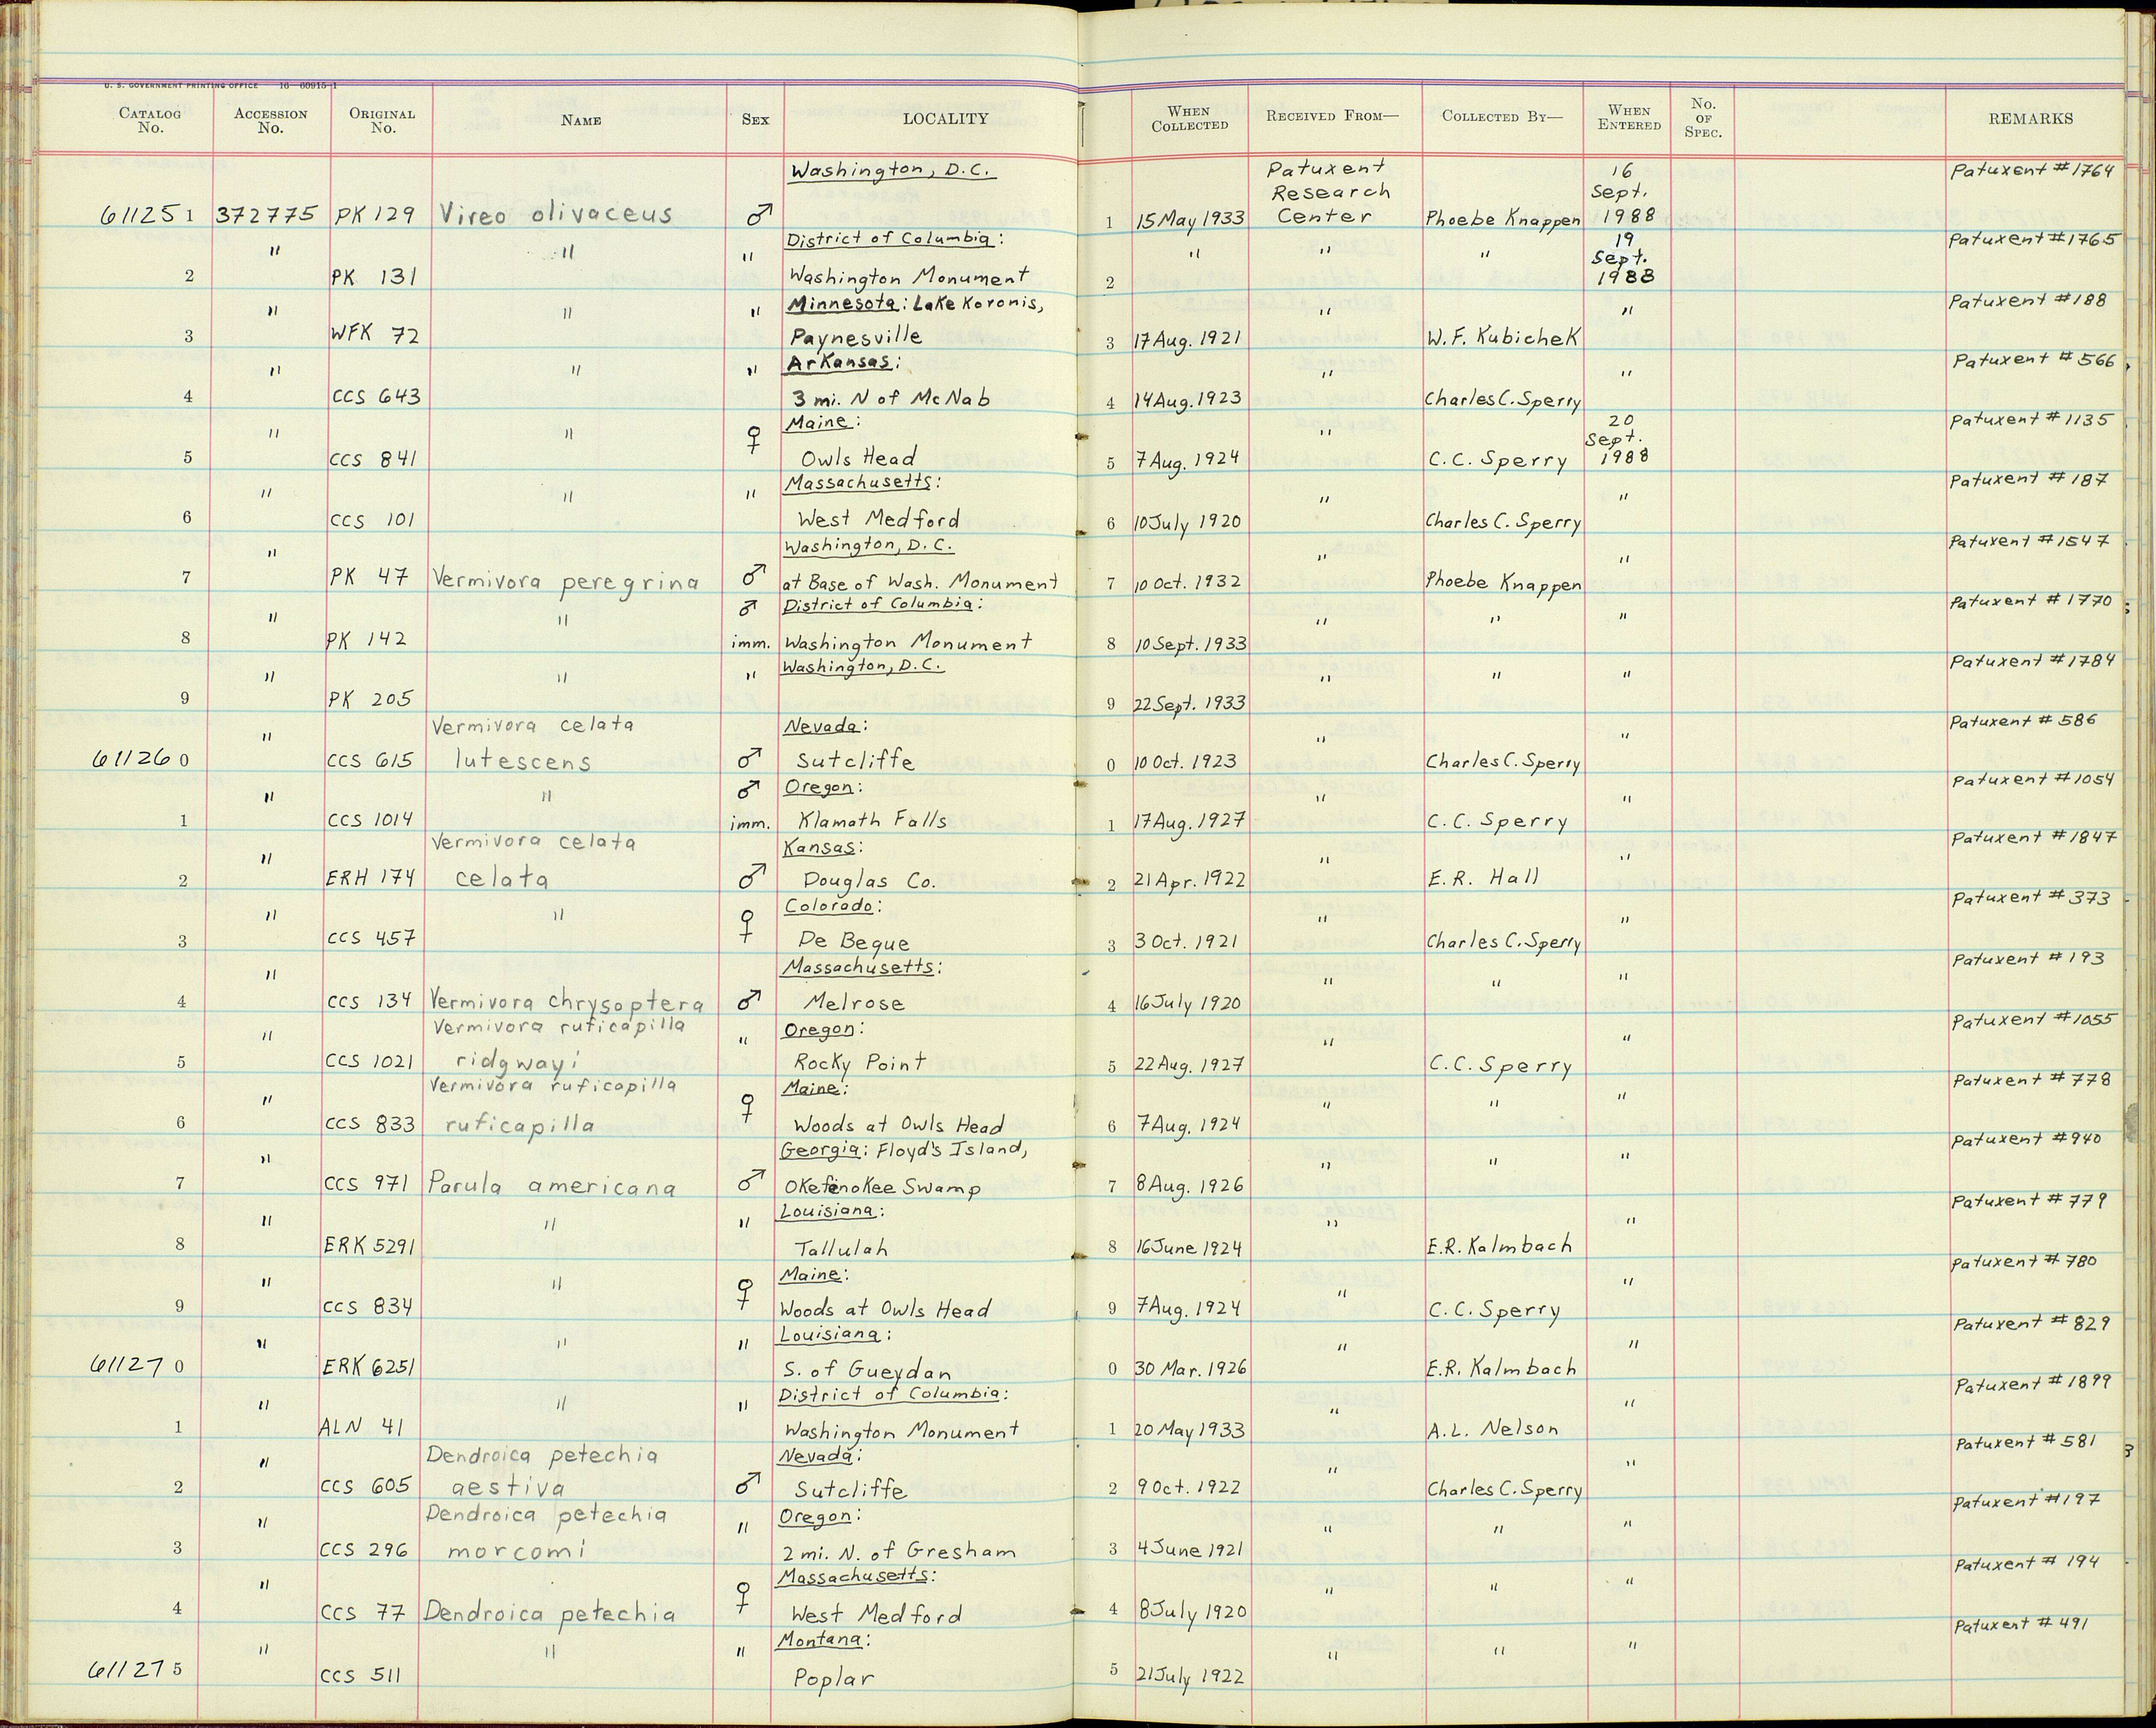 U. S. GOVERNMENT PRINTING OFFICE 16—60915-1
CATALOG No. ACCESSION No. ORIGINAL No. NAME SEX LOCALITY WHEN COLLECTED RECEIVED FROM— COLLECTED BY— WHEN ENTERED No. OF SPEC. REMARKS
Washington, D.C. Patuxent Research Center 16 Sept. 1988 Patuxent #1764
611251 372775 PK 129 Vireo olivaceus ♂ 1 15 May 1933 Phoebe Knappen
" " " District of Columbia: " " " 19 Sept. 1988 Patuxent #1765
2 PK 131 Washington Monument 2
" " " Minnesota: Lake Koronis, " " Patuxent #188
3 WFK 72 Paynesville 3 17 Aug. 1921 W.F. Kubichek
" " " Arkansas: " " Patuxent #566
4 CCS 643 3 mi. N of McNab 4 14 Aug. 1923 Charles C. Sperry
" " ♀ Maine: " 20 Sept. 1988 Patuxent #1135
5 CCS 841 Owls Head 5 7 Aug. 1924 C.C. Sperry
" " " Massachusetts: " " Patuxent #187
6 CCS 101 West Medford 6 10 July 1920 Charles C. Sperry
" Washington, D.C. " " Patuxent #1547
7 PK 47 Vermivora peregrina ♂ at Base of Wash. Monument 7 10 Oct. 1932 Phoebe Knappen
" " ♂ District of Columbia: " " " Patuxent #1770
8 PK 142 imm. Washington Monument 8 10 Sept. 1933
" " " Washington, D.C. " " " Patuxent #1784
9 PK 205 9 22 Sept. 1933
" Vermivora celata Nevada: " " Patuxent #586
611260 CCS 615 lutescens ♂ Sutcliffe 0 10 Oct. 1923 Charles C. Sperry
" " ♂ Oregon: " " Patuxent #1054
1 CCS 1014 imm. Klamath Falls 1 17 Aug. 1927 C.C. Sperry
" Vermivora celata Kansas: " " Patuxent #1847
2 ERH 174 celata ♂ Douglas Co. 2 21 Apr. 1922 E.R. Hall
" " ♀ Colorado: " " Patuxent #373
3 CCS 457 De Beque 3 3 Oct. 1921 Charles C. Sperry
" Massachusetts: " " " Patuxent #193
4 CCS 134 Vermivora chrysoptera ♂ Melrose 4 16 July 1920
" Vermivora ruficapilla " Oregon: " " Patuxent #1055
5 CCS 1021 ridgwayi Rocky Point 5 22 Aug. 1927 C.C. Sperry
" Vermivora ruficapilla ♀ Maine: " " " Patuxent #778
6 CCS 833 ruficapilla Woods at Owls Head 6 7 Aug. 1924
" Georgia: Floyd's Island, " " " Patuxent #940
7 CCS 971 Parula americana ♂ Okefenokee Swamp 7 8 Aug. 1926
" " " Louisiana: " " Patuxent #779
8 ERK 5291 Tallulah 8 16 June 1924 E.R. Kalmbach
" " ♀ Maine: " " Patuxent #780
9 CCS 834 Woods at Owls Head 9 7 Aug. 1924 C.C. Sperry
" " " Louisiana: " " Patuxent #829
611270 ERK 6251 S. of Gueydan 0 30 Mar. 1926 E.R. Kalmbach
" " " District of Columbia: " " Patuxent #1899
1 ALN 41 Washington Monument 1 20 May 1933 A.L. Nelson
" Dendroica petechia Nevada: " " Patuxent #581
2 CCS 605 aestiva ♂ Sutcliffe 2 9 Oct. 1922 Charles C. Sperry
" Dendroica petechia " Oregon: " " " Patuxent #197
3 CCS 296 morcomi 2 mi. N. of Gresham 3 4 June 1921
" ♀ Massachusetts: " " " Patuxent #194
4 CCS 77 Dendroica petechia West Medford 4 8 July 1920
" " " Montana: " " " Patuxent #491
611275 CCS 511 Poplar 5 21 July 1922